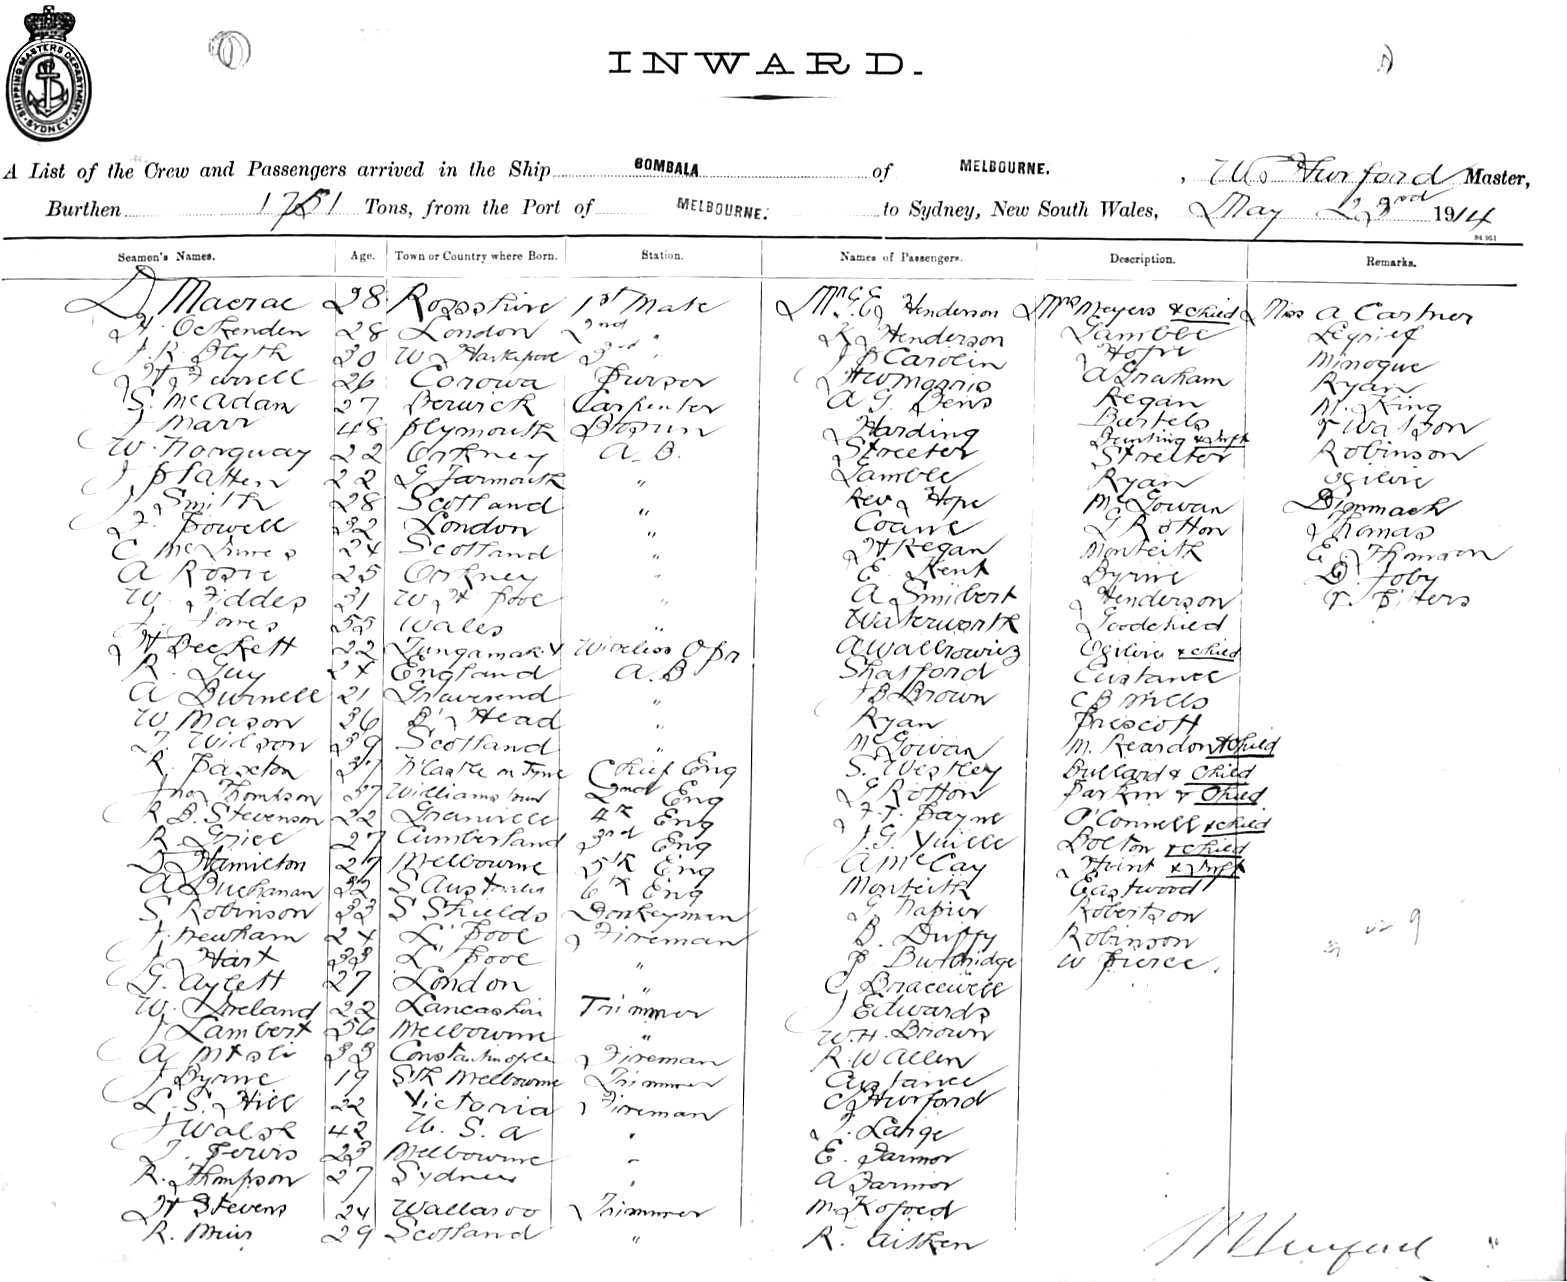 SHIPPING MASTERS DEPARTMENT
SYDNEY
INWARD.
A List of the Crew and Passengers arrived in the Ship BOMBALA of MELBOURNE. , W Hurford Master,
Burthen 1751 Tons, from the Port of MELBOURNE. to Sydney, New South Wales, May 23rd 1914
Seamen's Names. Age. Town or Country where Born. Station. Names of Passengers. Description. Remarks.
D Macrae 28 Rossshire 1st Mate Mr G E Henderson Mrs Meyers & child Miss A Cartner
H. Ockenden 28 London 2nd " K Henderson Gamble Legrief
J. R. Blyth 30 W Hartlepool 3rd " J P Carolin Hope Minogue
H Ferrell 26 Corowa Purser H W Morris A Graham Ryan
S. McAdam 27 Berwick Carpenter A G Bens Regan M. King
J Marr 48 Plymouth Bosun Harding Bartels Watson
W. Norquay 22 Orkney A. B. Streeter Bunting & Inft Robinson
J Platten 22 G Yarmouth " Gamble Streeter Ogilvie
J Smith 28 Scotland " Rev J Hope Ryan Dimmack
F. Powell 32 London " Coane McGowan Thomas
C McInnes 24 Scotland " H Regan G Rotton E Thomson
A Rosie 25 Orkney " E. Kent Monteith D. Toby
W. Fiddes 31 W H Pool " A Smibert Byrne Peters
J. Jones 55 Wales " Waterworth Henderson
H Beckett 22 Tungamah V Wireless Opr A Wallrowicz Goodchild
R. Guy 24 England A. B Shatford Ogilvie & child
A Burnell 21 Gravesend " B Brown Custance
W Mason 36 B'Head " Ryan C B Mills
J. Wilson 39 Scotland " McGowan Prescott
R. Paxton 37 N'Castle on Tyne Chief Eng S. Westley M. Reardon & child
Jno Thompson 37 Williamstown 2nd Eng G Rotton Bullard & child
R B. Stevenson 22 Granville 4th Eng F. J. Payne Parkin & child
R. Grice 27 Cumberland 3rd Eng J. G. Yuille O'Connell & child
D Hamilton 27 Melbourne 5th Eng A McCay Bolton & child
A Buchanan 32 S Australia 6th Eng Monteith Flint & Inft
S. Robinson 33 S Shields Donkeyman G Napier Eastwood
J. Newham 24 L'pool Fireman B. Duffy Robertson
J Hart 33 L'pool " P Burbridge Robinson
G. Aylett 27 London " C Bracewell W Pierce.
W. Ireland 22 Lancashire Trimmer J Edwards
J Lambert 56 Melbourne " W. H. Brown
A 33 Constantinople Fireman R. W Allen
J Byrne 19 Sth Melbourne Trimmer Custance
L. S. Hill 22 Victoria Fireman C Hurford
J Walsh 42 U. S. A " J. Large
J. Lewis 23 Melbourne " E. Farmor
R. Thompson 27 Sydney " A Farmor
H Stevens 24 Wallaroo Trimmer M Kofoed
R. Muir 29 Scotland " R. Aitken
W Hurford